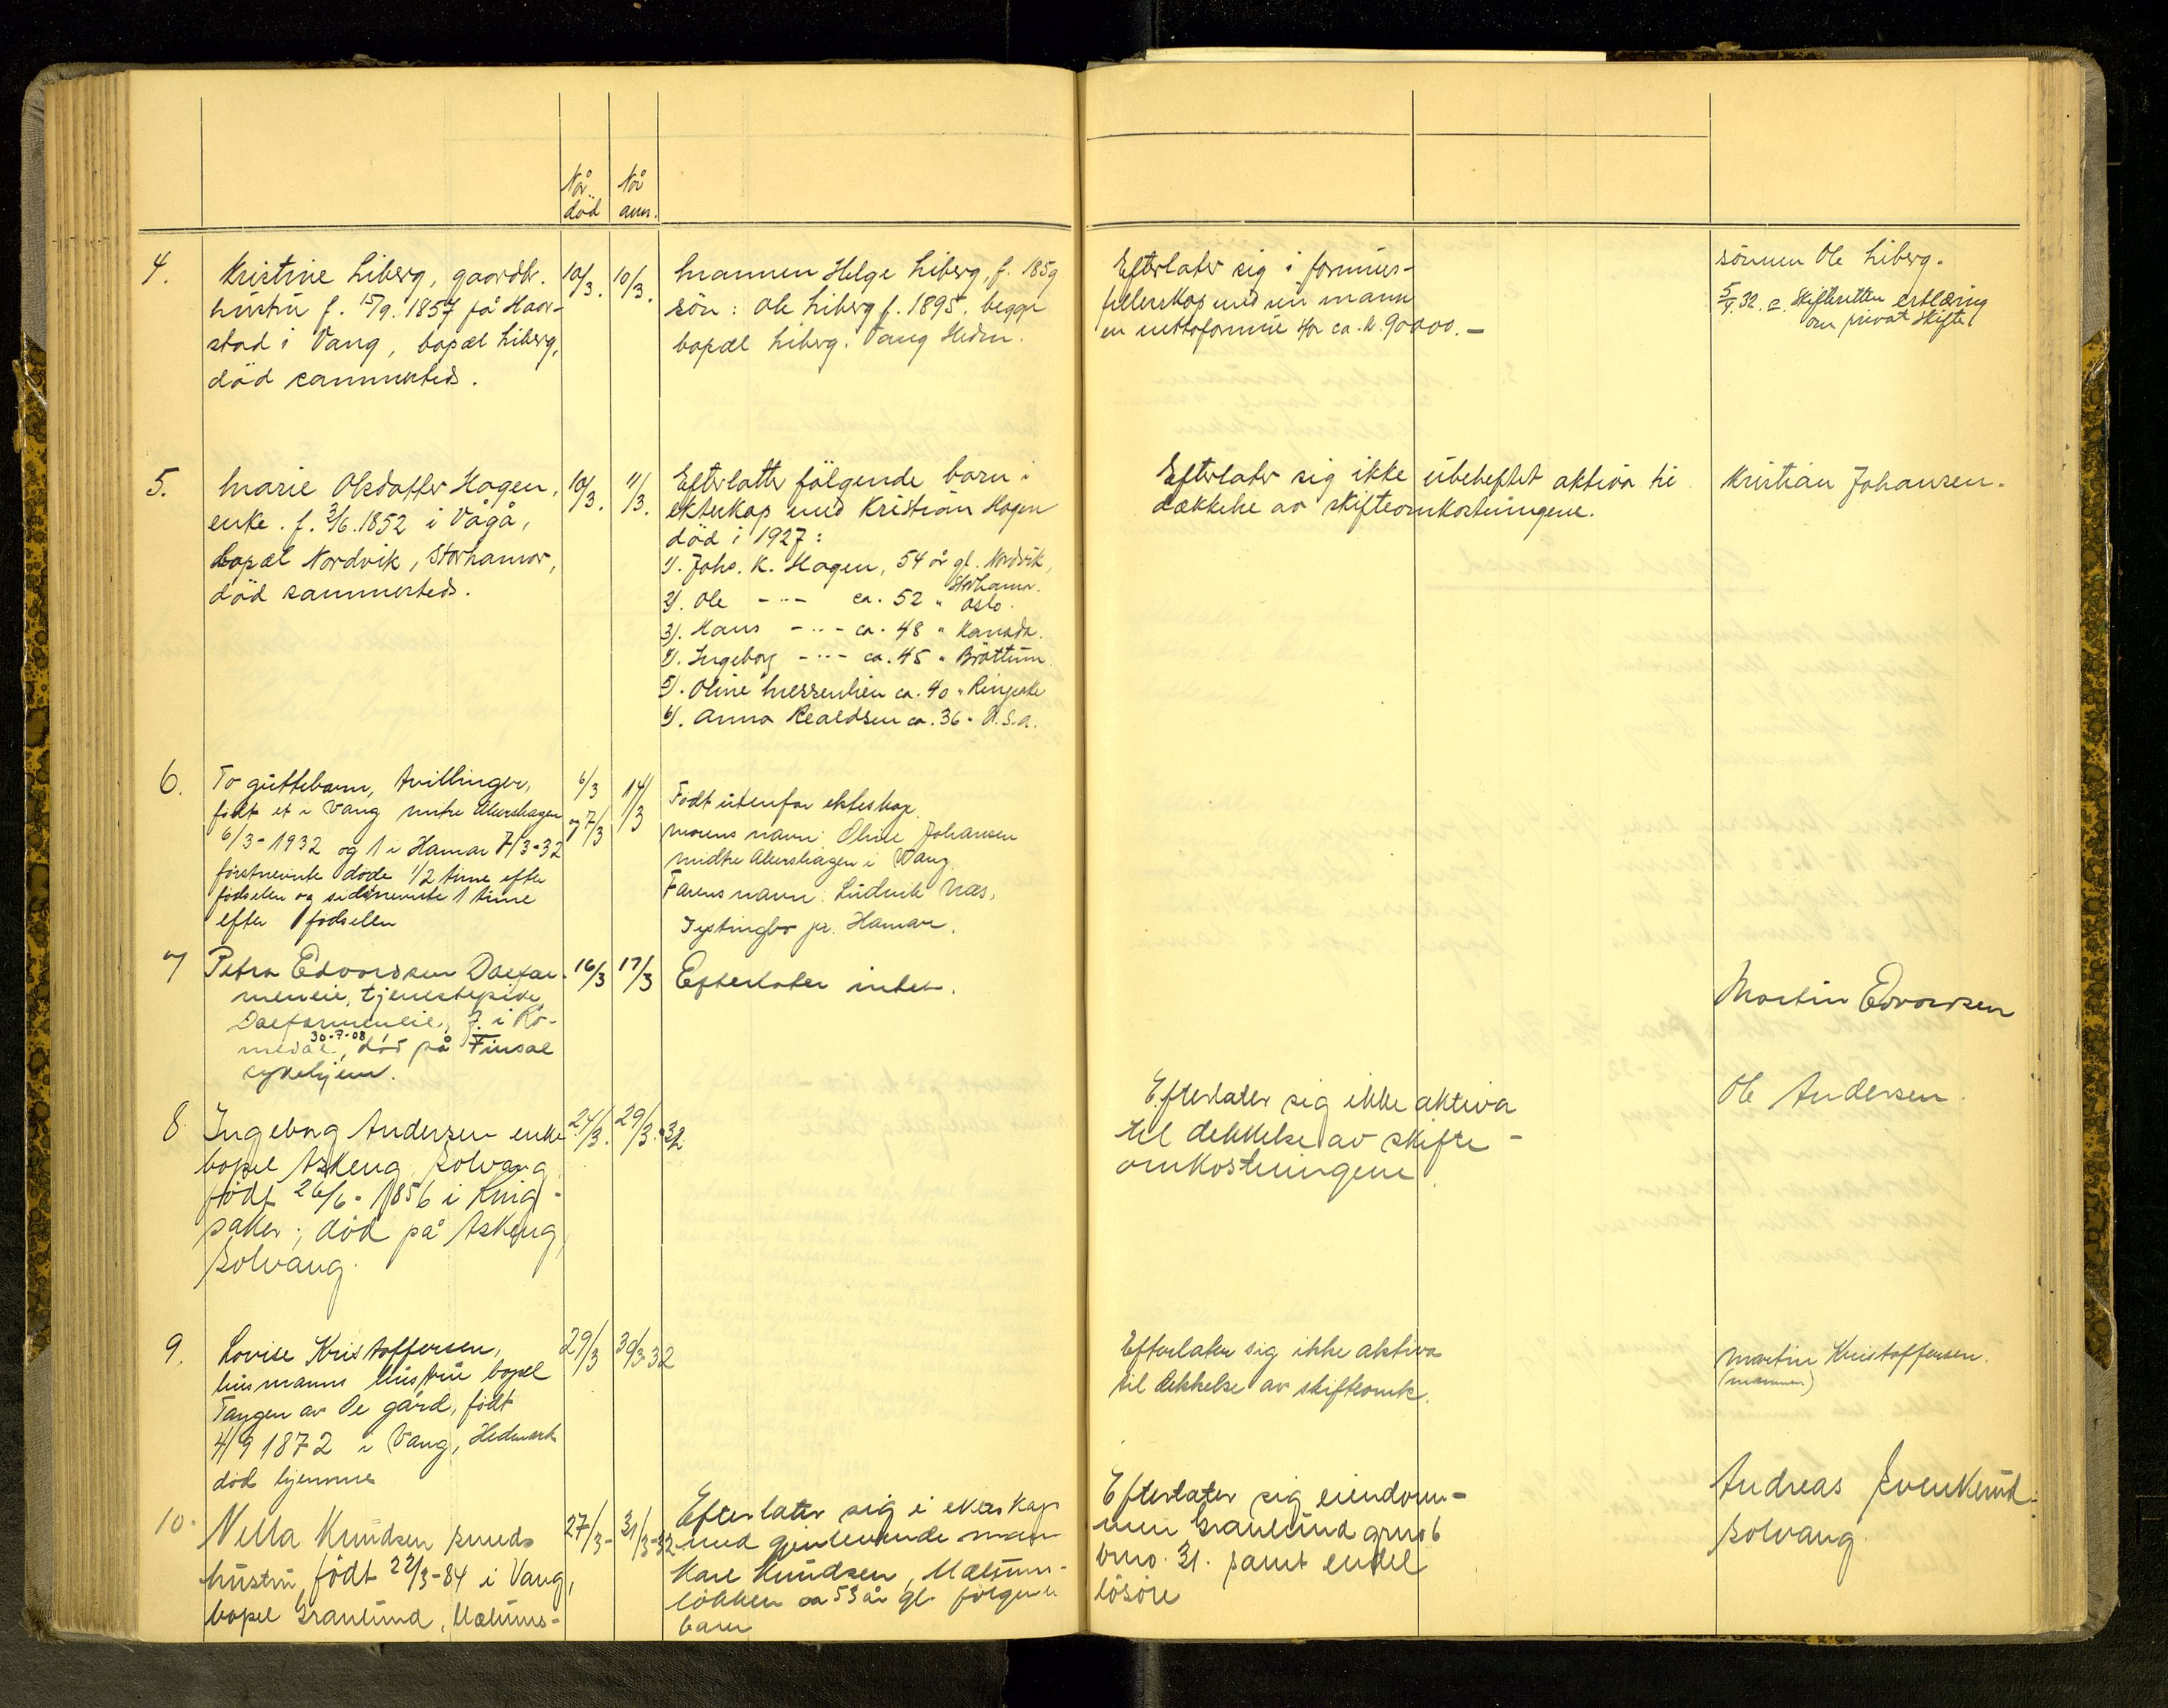 Når død
Når anm.
4.
Kristine Liberg, gaardbr.
hustru f. 15/9. 1857 på Haor-
stad i Vang, bopæl Liberg,
død sammesteds.
10/3.
10/3.
Mannen Helge Liberg, f. 1859
sön: Ole Liberg f. 1895. begge
bopæl Liberg. Vang Hedm.
Efterlater sig i formues-
fellesskap med sin mann
en nettoformue stor ca. kr. 90000.-
sönnen Ole Liberg.
5/4.32. Skifteretten erklæring
om privat skifte
5.
Marie Olsdatter Hagen,
enke. f. 3/6.1852 i Vågå,
bopæl Nordvik, Storhamar,
död sammesteds.
10/3.
11/3.
Efterlatte fölgende barn i
ekteskap med Kristian Hagen
död i 1927:
1). Johs. K. Hagen, 54 år gl. Nordvik,
Storhamar.
2). Ole -"- ca. 52 " Oslo.
3). Hans -"- ca. 48 " Kanada.
4). Ingeborg -"- ca. 45 " Bröttum.
5). Oline Messenlien ca. 40 " Ringsake
6). Anna Realdsen ca. 36 " U.S.A.
Efterlater sig ikke ubeheftet aktiva til
dækkelse av skifteomkostningene.
Kristian Johansen.
6.
To guttebarn, tvillinger,
födt et i Vang midtre Akershagen
6/3-1932 og 1 i Hamar 7/3-32
förstnevnte döde 1/2 time efter
födselen og sidstnevnte 1 time
efter födselen
6/3
og 7/3
14/3
Födt utenfor ekteskap.
Morens navn: Oline Johansen
midtre Akershagen i Vang.
Farens navn: Ludvik Næs,
Tystingbo pr. Hamar.
7
Petra Edvardsen Dælfar-
meneie, tjenestepike,
Dælfarmeneie, f. i Ro-
30-7-08
medal, död på Finsal
sykehjem.
16/3
17/3
Efterlater intet.
Martin Edvardsen
8.
Ingeborg Andersen enke
bopel Askeng, Solvang
födt 26/6-1856 i Ring-
saker; död på Askeng,
Solvang.
24/3.
29/3.-32.
Efterlater sig ikke aktiva
til dekkelse av skifte-
omkostningene.
Ole Andersen.
9.
Lovise Kristoffersen,
husmanns hustru bopel
Tangen av De gård, födt
4/9 1872 i Vang, Hedmark
död hjemme
29/3
30/3-32
Efterlater sig ikke aktiva
til dekkelse av skifteomk.
Martin Kristoffersen.
(mannen)
10.
Nella Knudsen smeds
hustru, födt 22/3-84 i Vang,
bopel Granlund, Mælums-
27/3-
31/3-32
Efterlater sig i ekteskap
med gjenlevende mann
Karl Knudsen, Mælums-
lökken ca 53 år gl. fölgende
barn
Efterlater sig eiendom-
men Granlund grno 6
brno. 31. samt endel
lösöre
Andreas Svenkerud.
Solvang.